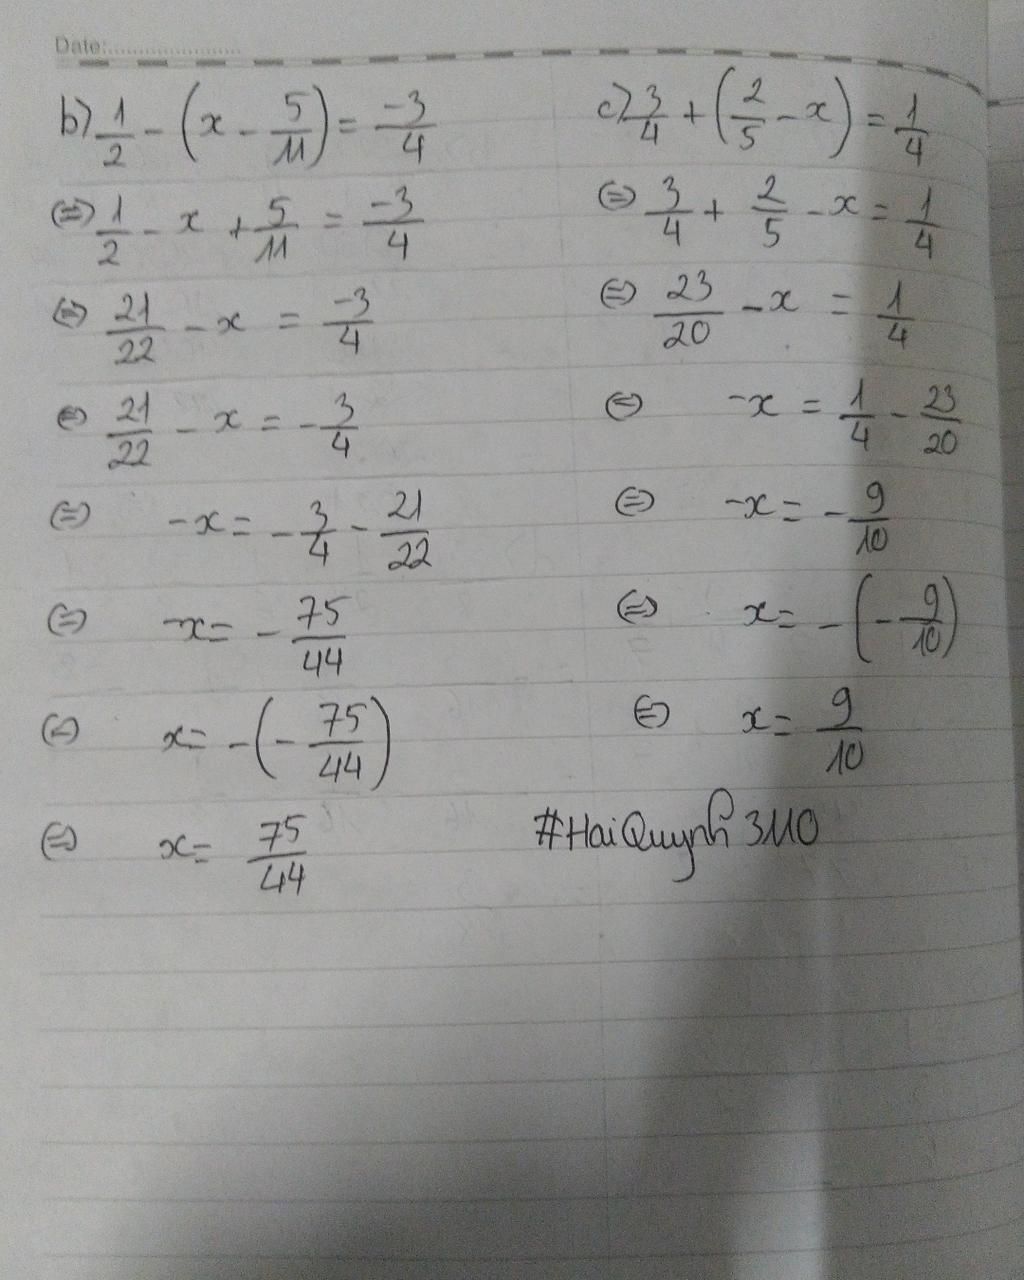 Date:......................
b) 1/2 - (x - 5/11) = -3/4
⇔ 1/2 - x + 5/11 = -3/4
⇔ 21/22 - x = -3/4
⇔ 21/22 - x = - 3/4
⇔ -x = - 3/4 - 21/22
⇔ -x = - 75/44
⇔ x = - (- 75/44)
⇔ x = 75/44
c) 3/4 + (2/5 - x) = 1/4
⇔ 3/4 + 2/5 - x = 1/4
⇔ 23/20 - x = 1/4
⇔ -x = 1/4 - 23/20
⇔ -x = - 9/10
⇔ x = - (- 9/10)
⇔ x = 9/10
#HaiQuynh 3110